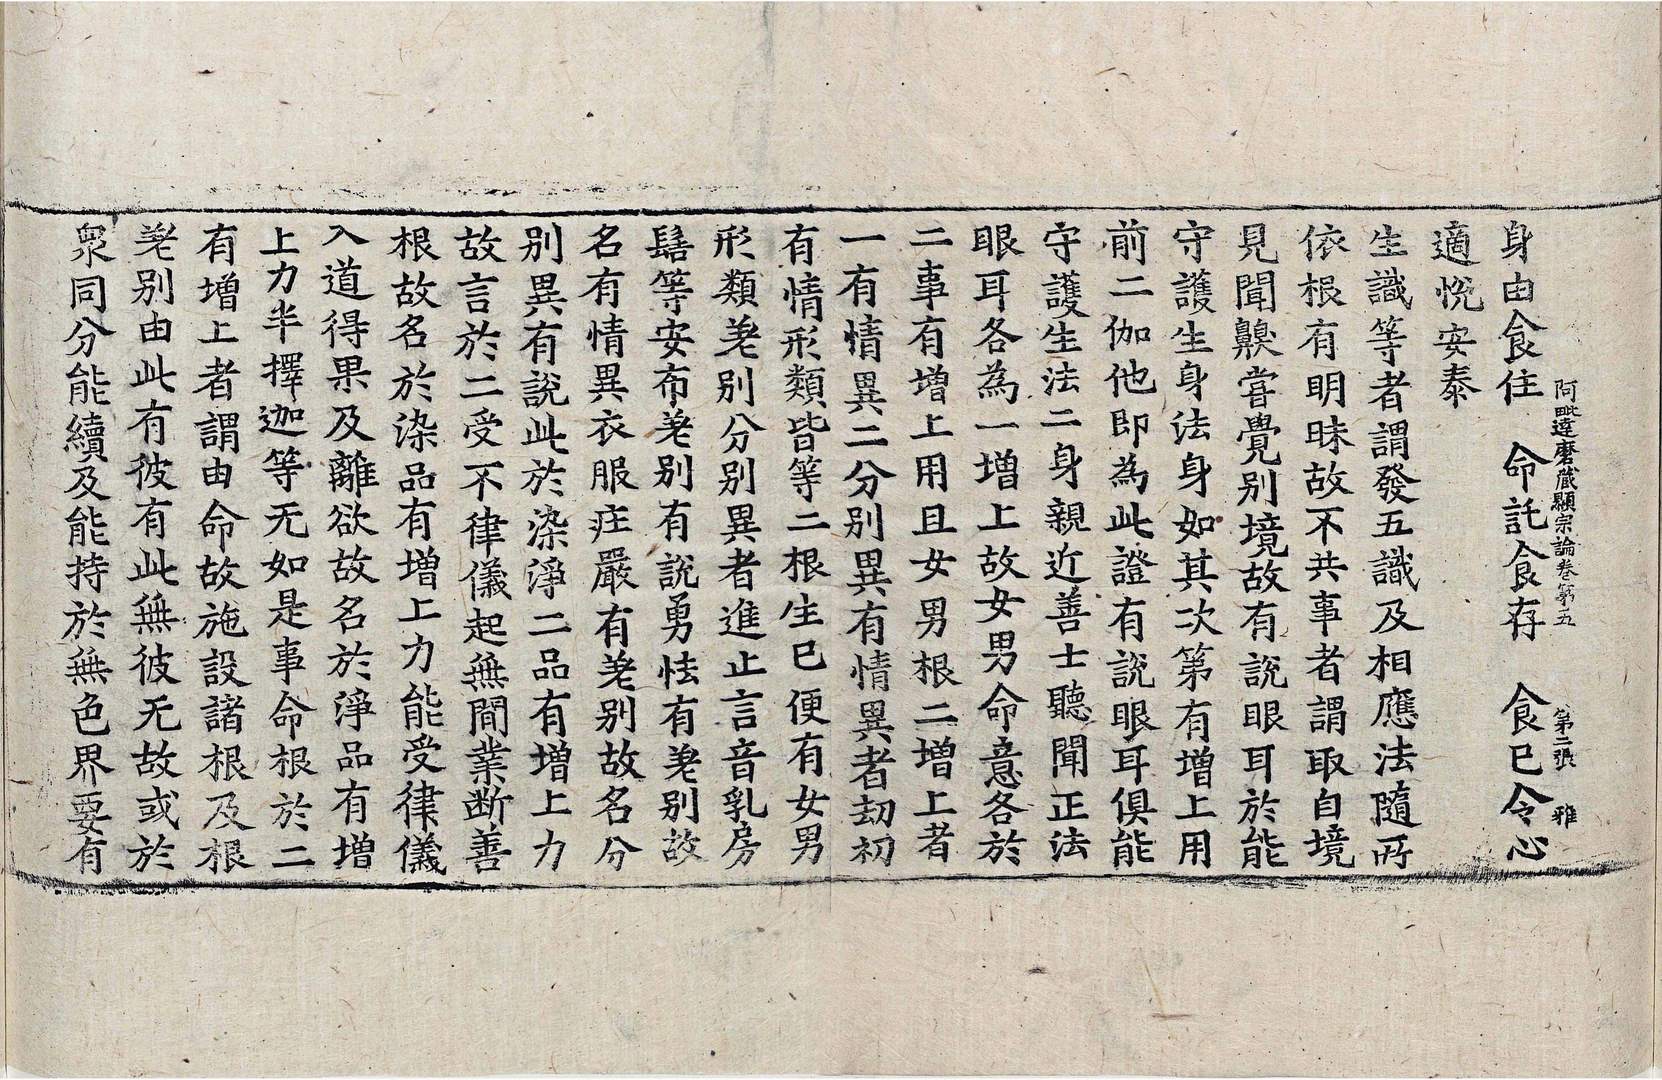 阿毗達磨藏顯宗論卷第五 第二張 雅
身由食住 命託食存 食已令心
適悅安泰
生識等者謂發五識及相應法隨所
依根有明昧故不共事者謂取自境
見聞齅甞覺別境故有說眼耳於能
守護生身法身如其次第有增上用
前二伽他即為此證有說眼耳俱能
守護生法二身親近善士聽聞正法
眼耳各為一增上故女男命意各於
二事有增上用且女男根二增上者
一有情異二分別異有情異者劫初
有情形類皆等二根生已便有女男
形類差別分別異者進止言音乳房
髻等安布差別有說勇怯有差別故
名有情異衣服莊嚴有差別故名分
別異有說此於染淨二品有增上力
故言於二受不律儀起無間業斷善
根故名於染品有增上力能受律儀
入道得果及離欲故名於淨品有增
上力半擇迦等无如是事命根於二
有增上者謂由命故施設諸根及根
差別由此有彼有此無彼无故或於
衆同分能續及能持於無色界要有